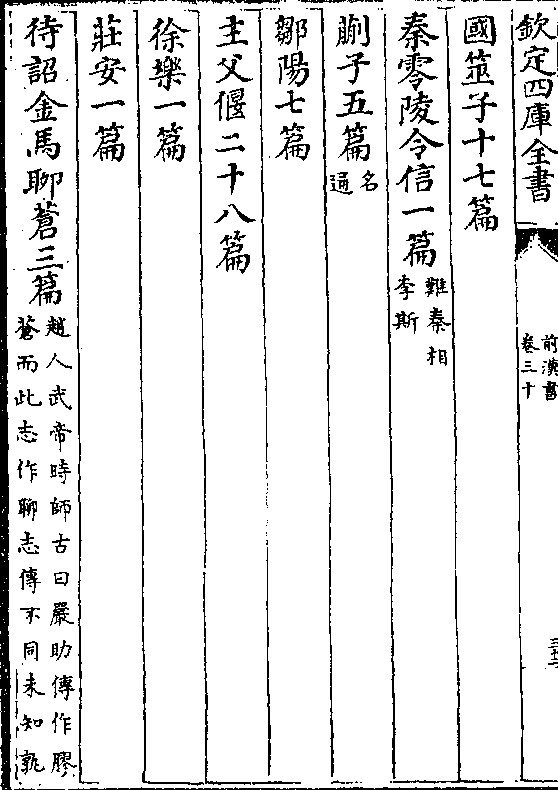 欽定四庫全書
前漢書
卷三十
國筮子十七篇
秦零陵令信一篇難秦相李斯
蒯子五篇名通
鄒陽七篇
主父偃二十八篇
徐樂一篇
莊安一篇
待詔金馬聊蒼三篇趙人武帝時師古曰嚴助傳作膠蒼而此志作聊志傳不同未知孰